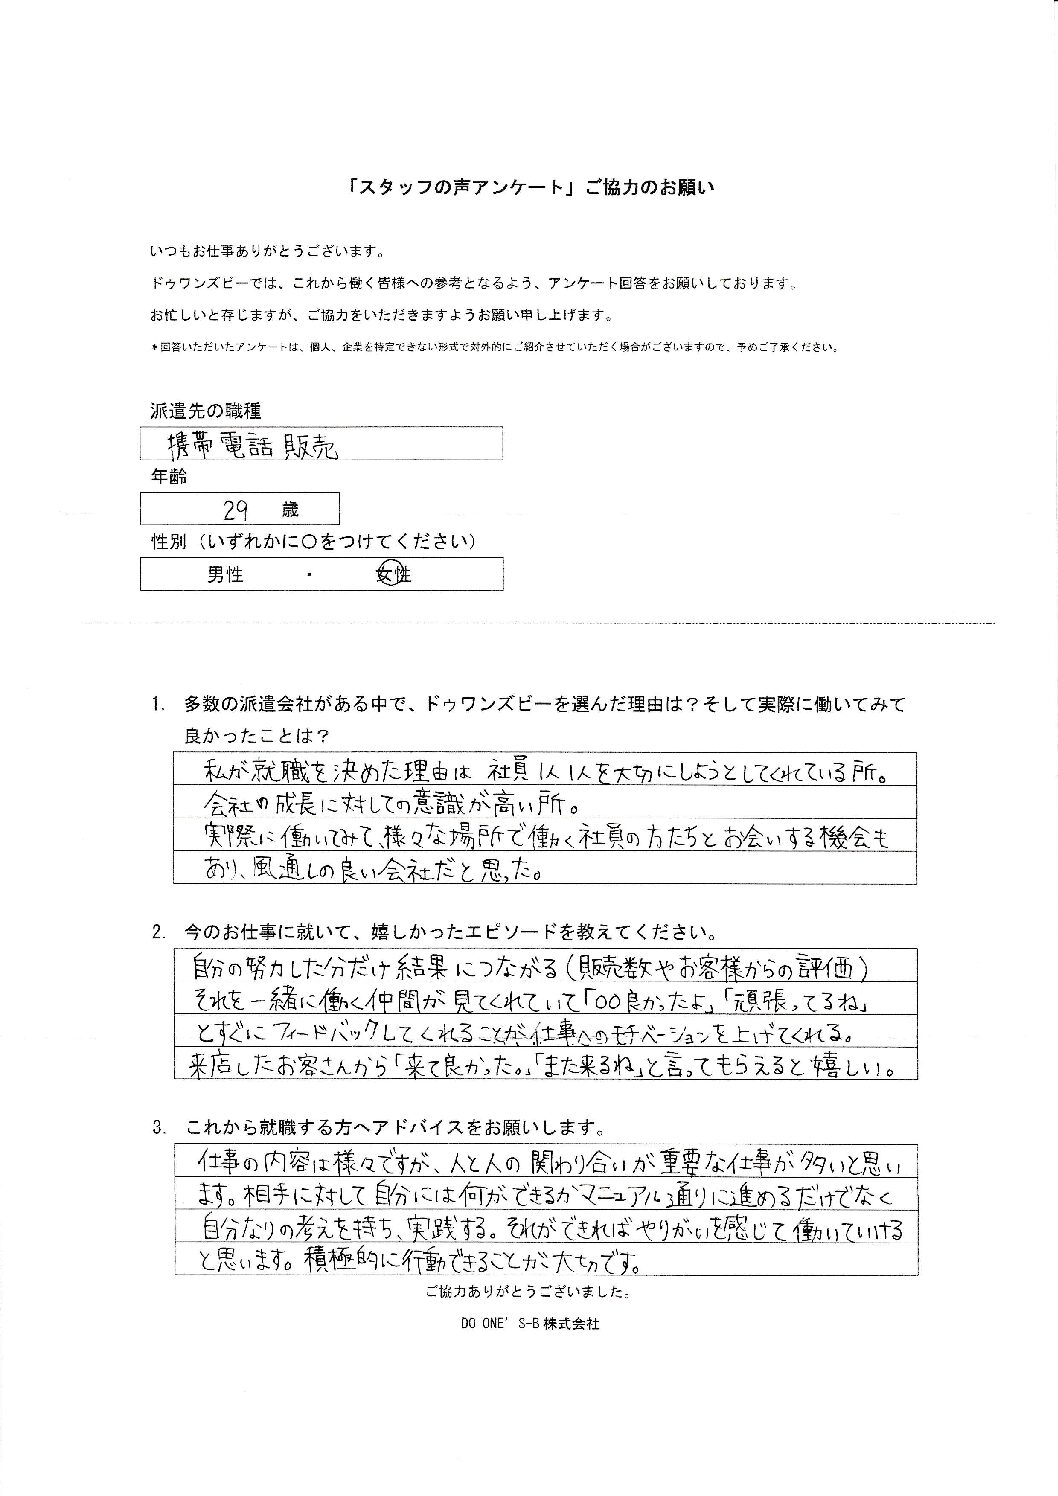 「スタッフの声アンケート」ご協力のお願い
いつもお仕事ありがとうございます。
ドゥワンズビーでは、これから働く皆様への参考となるよう、アンケート回答をお願いしております。
お忙しいと存じますが、ご協力をいただきますようお願い申し上げます。
＊回答いただいたアンケートは、個人、企業を特定できない形式で対外的にご紹介させていただく場合がございますので、予めご了承ください。
派遣先の職種
携帯電話 販売
年齢
29 歳
性別（いずれかに○をつけてください）
男性 ・ 女性
1. 多数の派遣会社がある中で、ドゥワンズビーを選んだ理由は？そして実際に働いてみて
良かったことは？
私が就職を決めた理由は 社員1人1人を大切にしようとしてくれている所。
会社の成長に対しての意識が高い所。
実際に働いてみて、様々な場所で働く社員の方たちとお会いする機会も
あり、風通しの良い会社だと思った。
2. 今のお仕事に就いて、嬉しかったエピソードを教えてください。
自分の努力した分だけ結果につながる（販売数やお客様からの評価）
それを一緒に働く仲間が見てくれていて「○○良かったよ」「頑張ってるね」
とすぐにフィードバックしてくれることが仕事へのモチベーションを上げてくれる。
来店したお客さんから「来て良かった。」「また来るね」と言ってもらえると嬉しい。
3. これから就職する方へアドバイスをお願いします。
仕事の内容は様々ですが、人と人の関わり合いが重要な仕事が多いと思い
ます。相手に対して自分には何ができるかマニュアル通りに進めるだけでなく
自分なりの考えを持ち、実践する。それができればやりがいを感じて働いていける
と思います。積極的に行動できることが大切です。
ご協力ありがとうございました。
DO ONE' S-B 株式会社